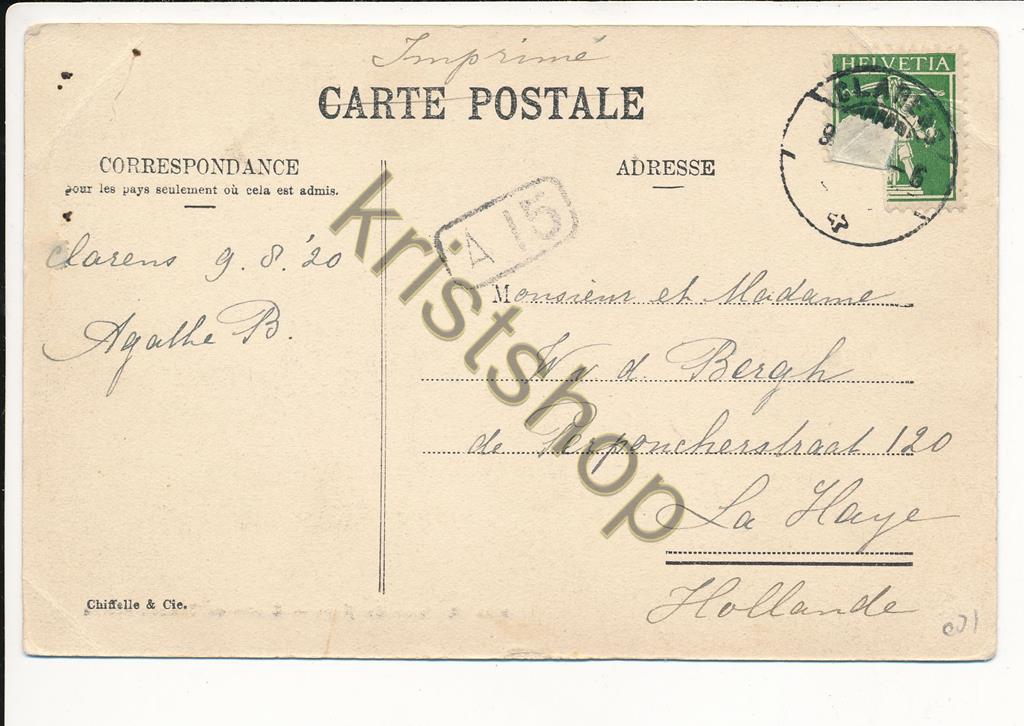 Imprimé
CARTE POSTALE
HELVETIA
CLARENS
CORRESPONDANCE
pour les pays seulement où cela est admis.
ADRESSE
A 15
Clarens 9. 8. '20
Agathe B.
Monsieur et Madame
W v d. Bergh
de Perponcherstraat 120
La Haye
Hollande
Chiffelle & Cie.
kristshop